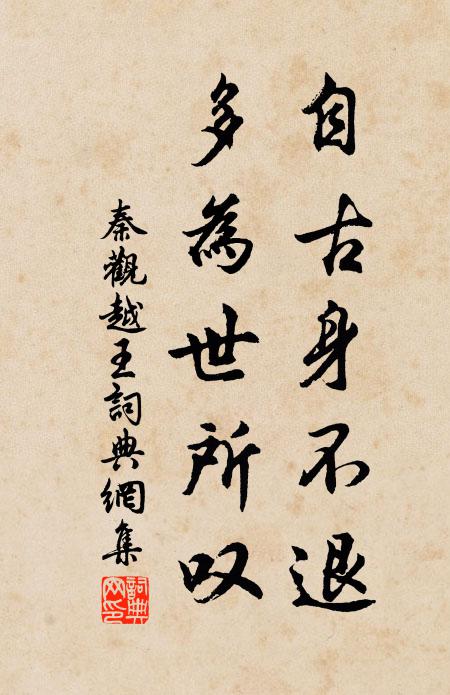 自古身不退
多為世所叹
秦觀越王詞典網集
詞典
网印